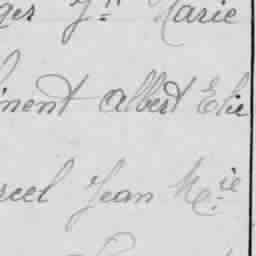 ger Jn Marie
inent Albert Elie
rcel Jean Mie